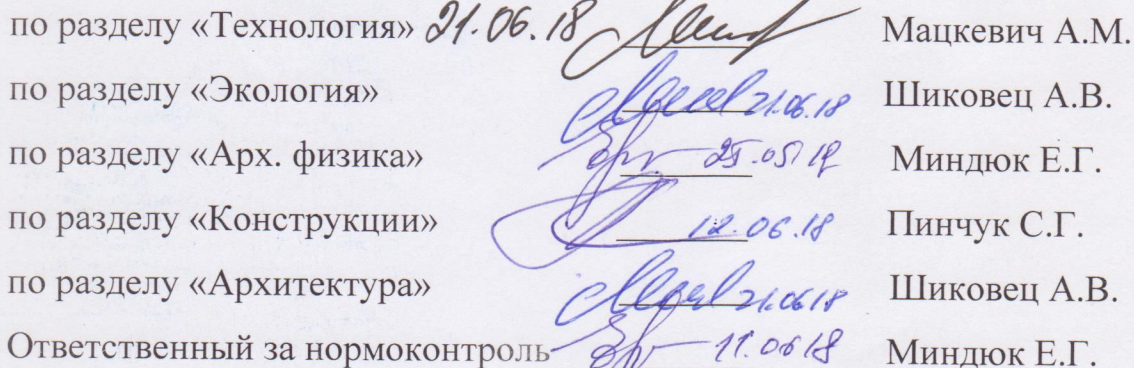 по разделу «Технология» 21.06.18 Мацкевич А.М.
по разделу «Экология» 21.06.18 Шиковец А.В.
по разделу «Арх. физика» 25.05.18 Миндюк Е.Г.
по разделу «Конструкции» 12.06.18 Пинчук С.Г.
по разделу «Архитектура» 21.06.18 Шиковец А.В.
Ответственный за нормоконтроль 11.06.18 Миндюк Е.Г.